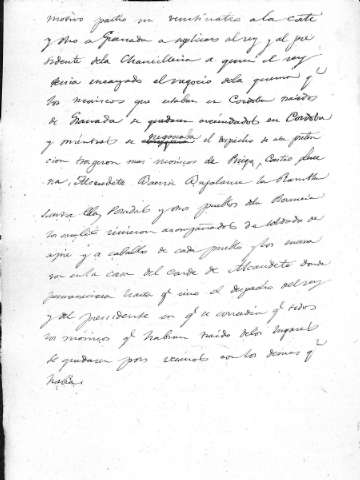 motivo partio un veinticuatro a la corte
y otro a Granada a suplicar al rey y al pre
sidente dela Chancilleria a quien el rey
tenia encargado el negocio dela guerra qe
los moriscos que estaban en Cordoba traidos
de Granada se quedaran avecindados en Cordoba
y mientras se negociaba el despacho de esta preten
cion trageron mas moriscos de Priego, Castro, Luce
na, Alcaudete Baena Bujalance la Rambla
y otros pueblos dela Provincia
los cuales vinieron acompañados de soldados de
a pie y a caballo de cada pueblo y los
ron en la casa del Conde de Alcaudete donde
permanecieron hasta qe vino el despacho del rey
y del presidente en qe se concedia qe todos
los moriscos qe habian traido delos lugares
se quedasen por vecinos con los demas qe
habia.